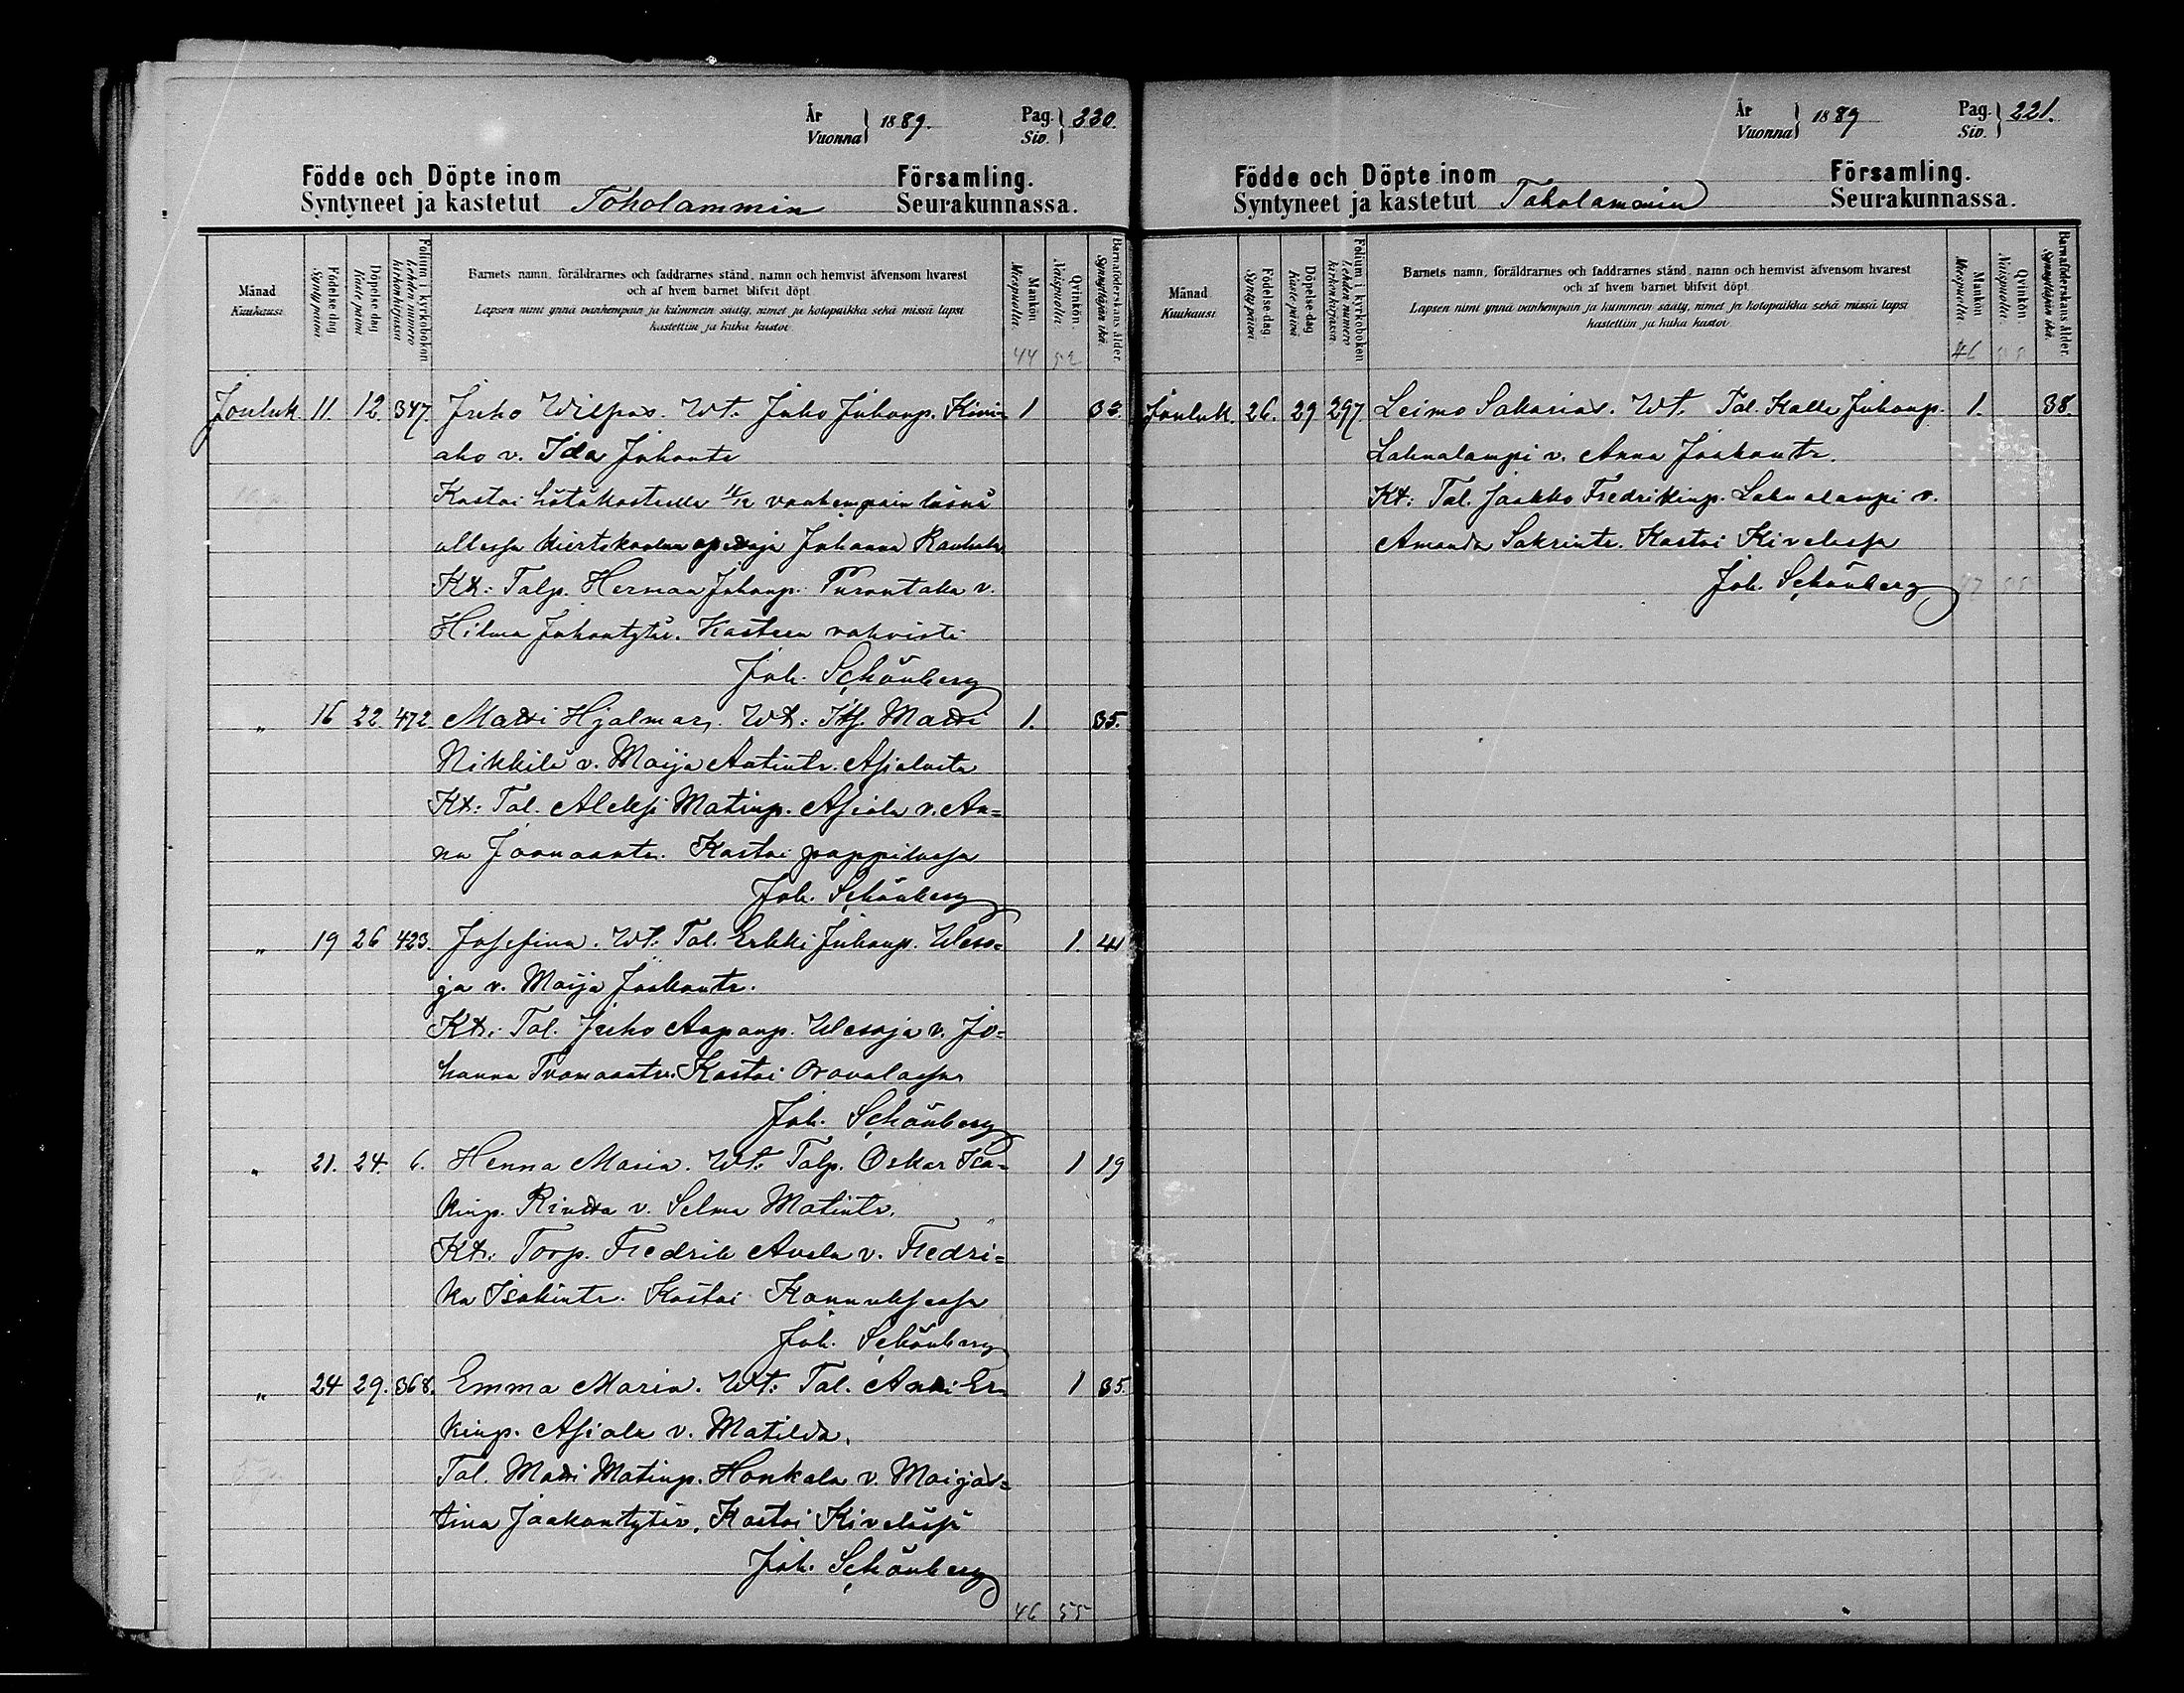 År
Vuonna } 1889.
Pag.
Siv. } 220.
Födde och Döpte inom Församling.
Syntyneet ja kastetut Toholammin Seurakunnassa.
Månad
Kuukausi
Födelse-dag
Syntypäivä
Döpelse-dag
Kastepäivä
Folium i kyrkoboken
Lehden numero kirkonkirjassa
Barnets namn, föräldrarnes och faddrarnes stånd, namn och hemvist äfvensom hvarest
och af hvem barnet blifvit döpt.
Lapsen nimi ynnä vanhempain ja kummein sääty, nimet ja kotopaikka sekä missä lapsi
kastettiin ja kuka kastoi.
Mankön
Miespuolia
Qvinkön.
Naispuolia
Barnaföderskans ålder.
Synnyttäjän ikä.
44 52
Jouluk. 11. 12. 347. Juho Wilpas. Wt. Juho Juhanp. Kivi- 1 32.
aho v. Ida Juhontr
Kastoi hätäkasteella 11/12 vanhempain läsnä
ollessa kiertokoulun opettaja Juhanna Rauhala
Kt: Talp. Herman Juhanp. Purontaka v.
Hilma Juhontytär. Kasteen vahvisti
Joh. Schönberg
" 16 22. 472. Matti Hjalmar. Wt: Its. Matti 1. 35.
Nikkilä v. Maija Antintr. Asialasta
Kt: Tal. Aleksi Matinp. Asiala v. An=
na Joonaantr. Kastoi pappilassa
Joh. Schönberg
" 19 26 423. Josefina. Wt: Tal. Erkki Juhanp. Ules= 1. 41
ja v. Maija Jaakontr.
Kt: Tal. Juho Aapanp. Ulesoja v. Jo=
hanna Tuomaantr. Kastoi Oravalassa
Joh. Schönberg
" 21. 24. 6. Henna Maria. Wt: Talp. Oskar Isa- 1 19
kinp. Rintta v. Selma Matintr.
Kt: Torp. Fredrik Avela v. Fredri=
ka Isakintr. Kastoi Kannuksessa
Joh. Schönberg
" 24 29. 368. Emma Maria. Wt: Tal. Antti Er= 1 35.
kinp. Asiala v. Matilda.
Tal. Matti Matinp. Honkala v. Maijas=
tina Jaakontytär. Kastoi Kivelässä
Joh. Schönberg
46 55
År
Vuonna } 1889
Pag.
Siv. } 221.
Födde och Döpte inom Församling.
Syntyneet ja kastetut Toholammin Seurakunnassa.
Månad
Kuukausi
Födelse-dag
Syntypäivä
Döpelse-dag
Kastepäivä
Folium i kyrkoboken
Lehden numero kirkonkirjassa
Barnets namn, föräldrarnes och faddrarnes stånd, namn och hemvist äfvensom hvarest
och af hvem barnet blifvit döpt.
Lapsen nimi ynnä vanhempain ja kummein sääty, nimet ja kotopaikka sekä missä lapsi
kastettiin ja kuka kastoi.
Mankön
Miespuolia
Qvinkön.
Naispuolia.
Barnaföderskans ålder.
Synnyttäjän ikä.
46
Jouluk. 26. 29 297. Leimo Sakarias. Wt. Tal. Kalle Juhanp. 1. 38.
Lahnalampi v. Anna Jaakontr.
Kt: Tal. Jaakko Fredrikinp. Lahnalampi v.
Amanda Sakrintr. Kastoi Kivelässä
Joh. Schönberg 47 55